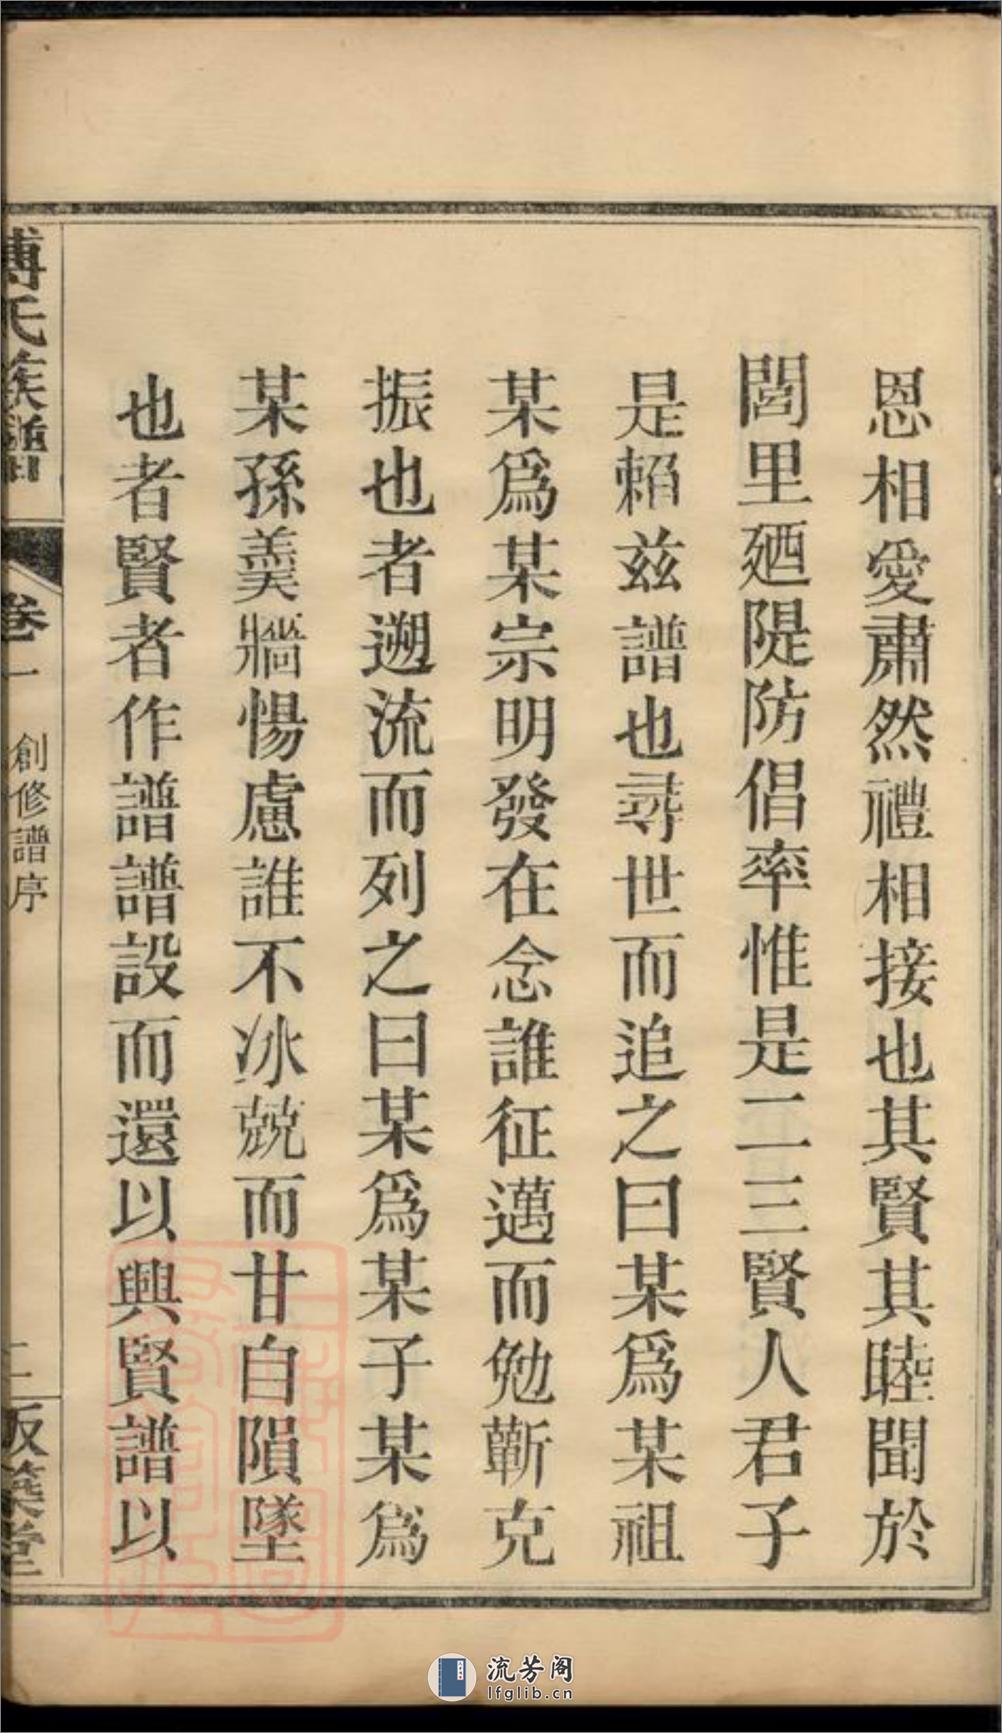 恩相愛肅然禮相接也其賢其睦聞於
閭里廼隄防倡率惟是二三賢人君子
是賴茲譜也尋世而追之曰某爲某祖
某爲某宗明發在念誰征邁而勉蘄克
振也者遡流而列之曰某爲某子某爲
某孫羹牆惕慮誰不冰兢而甘自隕墜
也者賢者作譜譜設而還以興賢譜以
傅氏族譜
卷一
創修譜序
二
版築堂
流芳阁
lfglib.cn